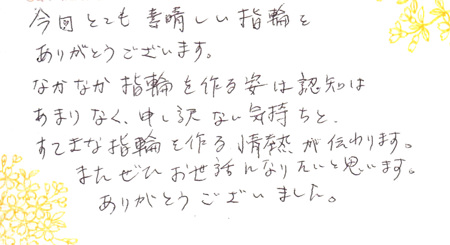 今回とても素晴しい指輪を
ありがとうございます。
なかなか指輪を作る姿は認知は
あまりなく、申し訳ない気持ちと、
すてきな指輪を作る情熱が伝わります。
またぜひお世話になりたいと思います。
ありがとうございました。